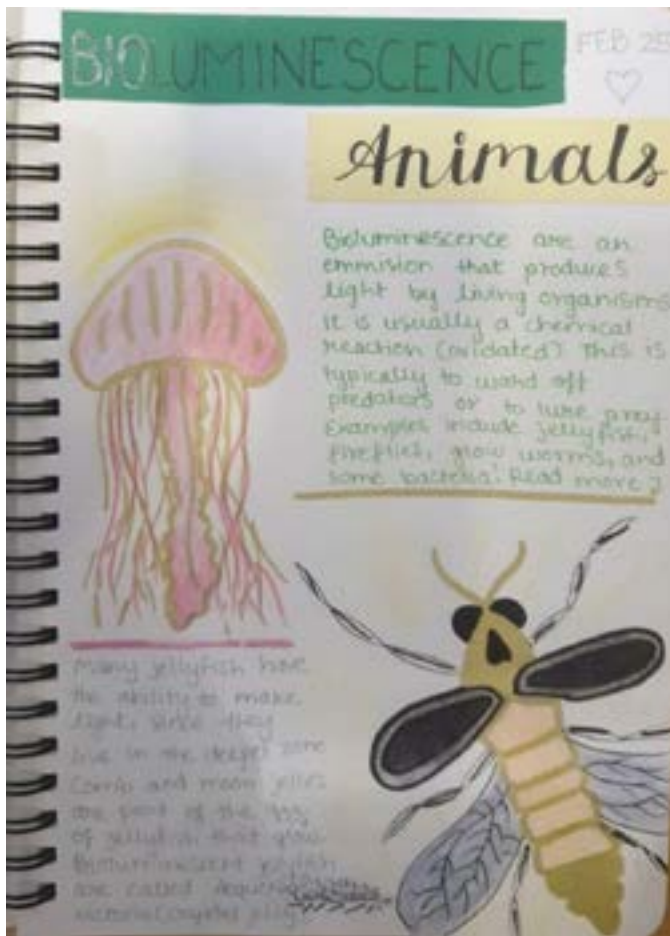 BIOLUMINESCENCE
FEB 25
Animals
Bioluminescence are an
emmision that produces
light by living organism
it is usually a chemical
reaction (oxidated). This is
typically to ward off
predators or to lure prey.
Examples include jellyfish,
fireflies, glow worms, and
some bacteria! Read more
Many jellyfish have
the ability to make
light, since they
live in the deeper zone
Comb and moon jellies
are part of the
of jellyfish that glow.
Bioluminescent jellyfish
are called
victoria (crystal jelly)